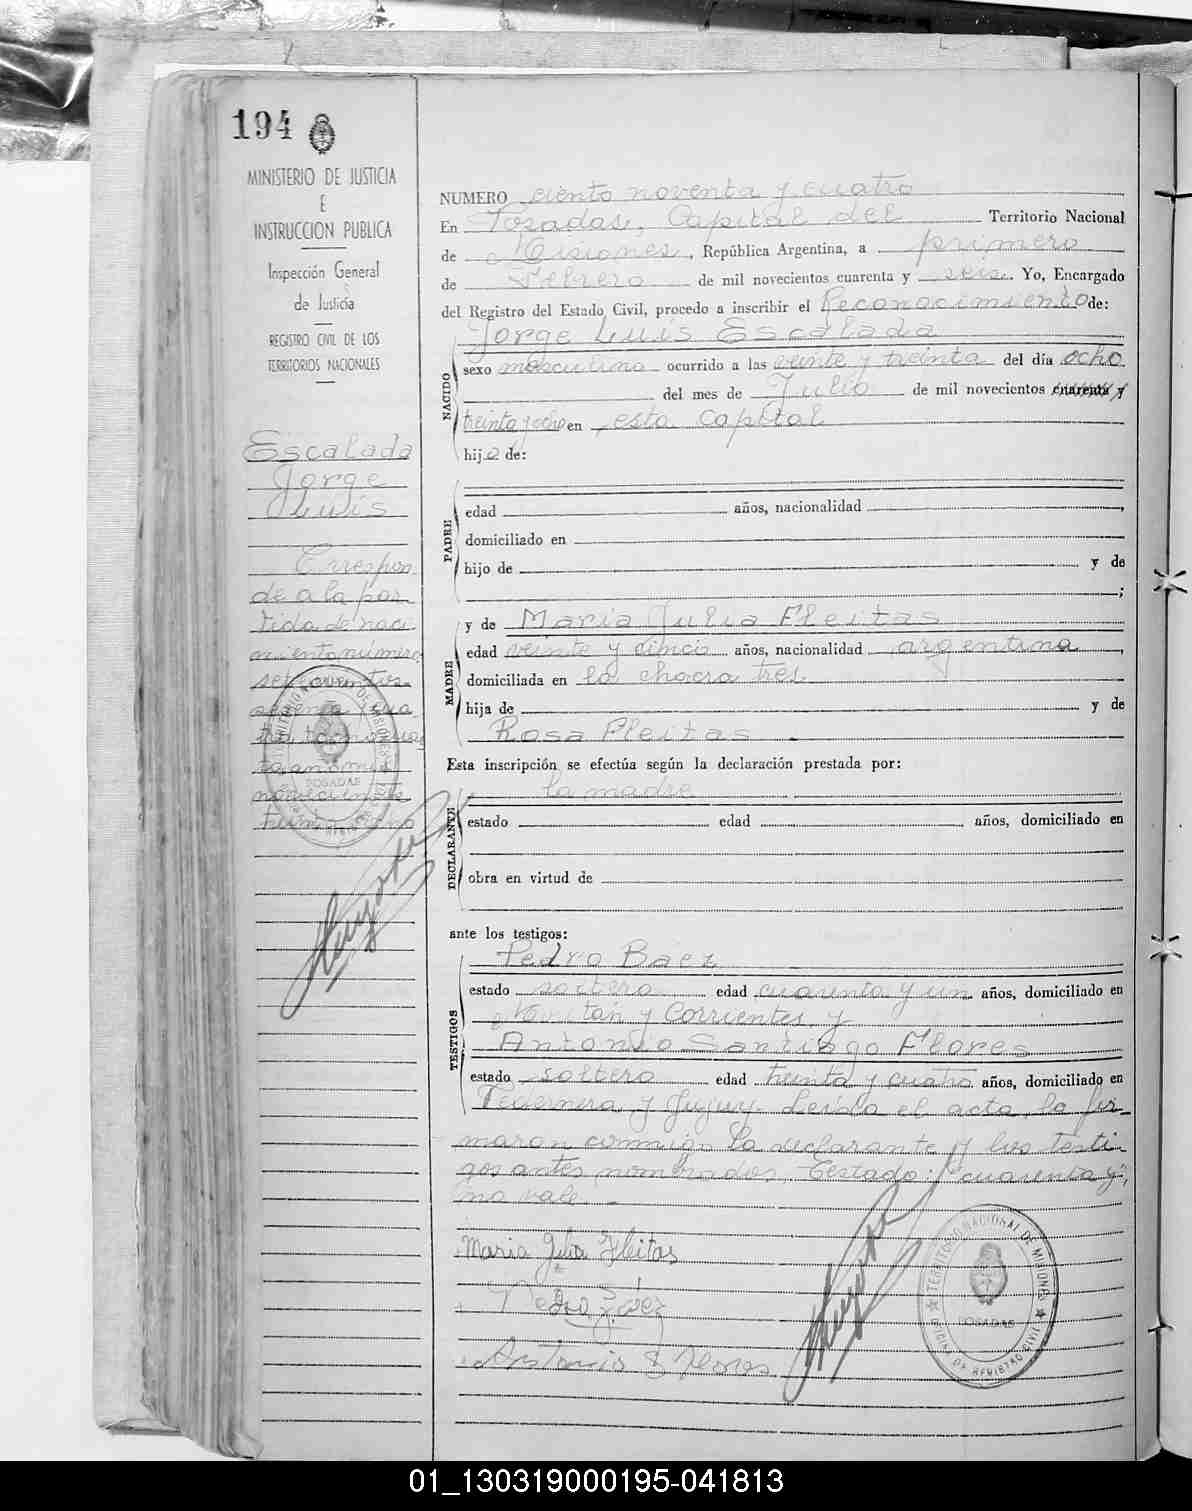 194
MINISTERIO DE JUSTICIA
E
INSTRUCCION PUBLICA
Inspección General
de Justicia
REGISTRO CIVIL DE LOS
TERRITORIOS NACIONALES
Escalada
Jorge
Luis
Correspon
de a la par
tida de naci
miento número
NUMERO ciento noventa y cuatro
En Posadas, Capital del Territorio Nacional
de Misiones, República Argentina, a primero
de Febrero de mil novecientos cuarenta y seis. Yo, Encargado
del Registro del Estado Civil, procedo a inscribir el Reconocimiento de:
NACIDO
Jorge Luis Escalada
sexo masculino ocurrido a las veinte y treinta del día ocho
del mes de Julio de mil novecientos cuarenta y
treinta y ocho en esta capital
hijo de:
PADRE
edad años, nacionalidad ,
domiciliado en
hijo de y de
;
MADRE
y de Maria Julia Fleitas
edad veinte y cinco años, nacionalidad argentina,
domiciliada en la chacra tres
hija de y de
Rosa Fleitas
Esta inscripción se efectúa según la declaración prestada por:
DECLARANTE
la madre
estado edad años, domiciliado en
obra en virtud de
ante los testigos:
TESTIGOS
Pedro Baez
estado soltero edad cuarenta y un años, domiciliado en
y Corrientes y
Antonio Santiago Flores
estado soltero edad treinta y cuatro años, domiciliado en
y Jujuy. Leída el acta, la fir-
maron conmigo la declarante y los testi-
gos antes nombrados. Testado: "cuarenta y",
no vale.-
Maria Julia Fleitas
Pedro Baez
Antonio S Flores
TERRITORIO NACIONAL DE MISIONES
POSADAS
OFICINA DE REGISTRO CIVIL
01_130319000195-041813